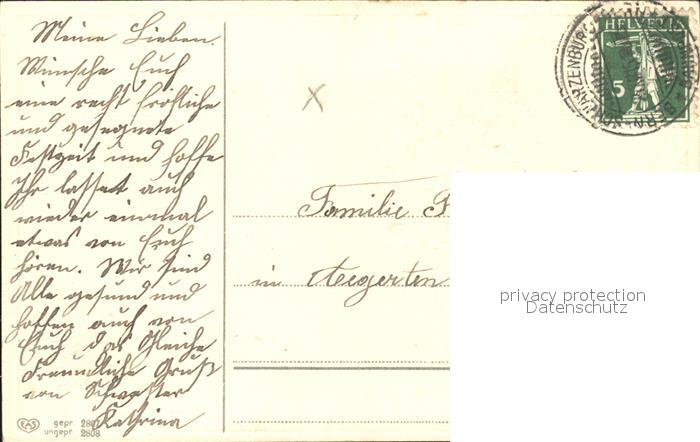 Meine Lieben.
Wünsche Euch
eine recht fröhliche
und gesegnete
Festzeit und hoffe
Ihr lasset auch
wieder einmal
etwas von Euch
hören. Wir sind
Alle gesund und
hoffen auch von
Euch das Gleiche
Freundliche Gruß
von Schwester
Kathrina
EAS gepr. 2807
ungepr. 2808
X
HELVETIA
5
BERN-SCHWARZENBURG
Familie
in Aegerten
privacy protection
Datenschutz